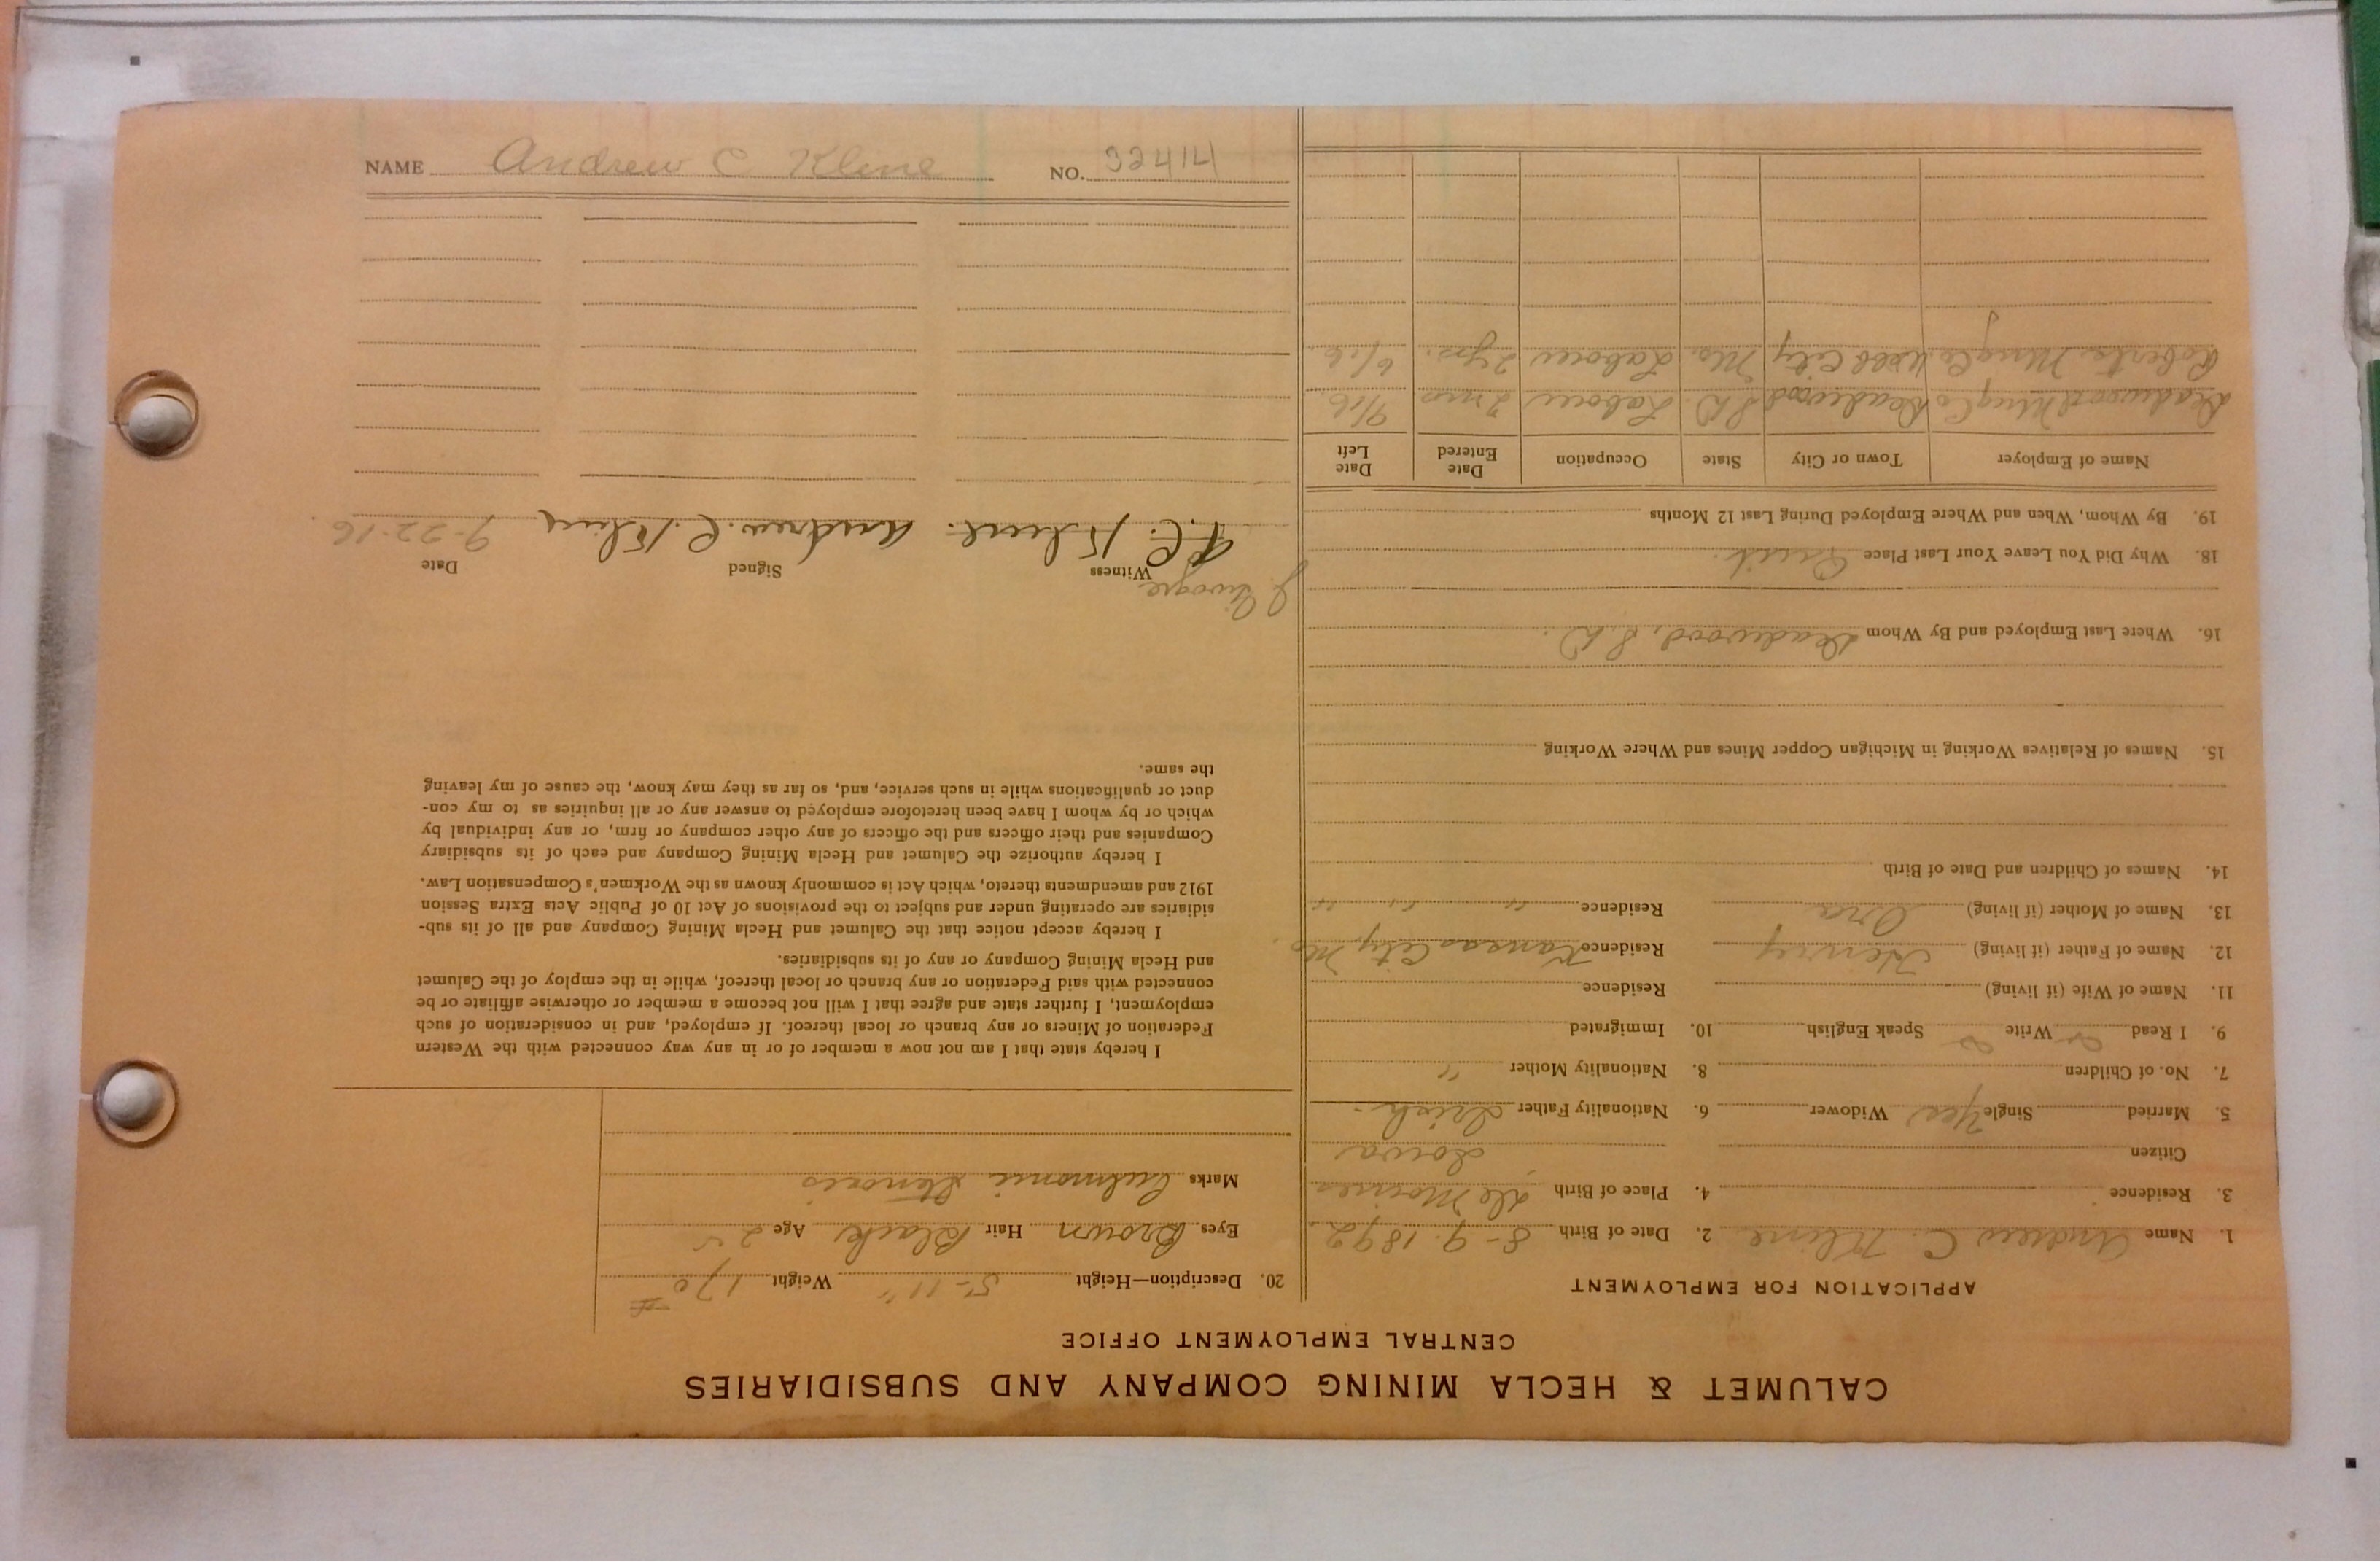 CALUMET & HECLA MINING COMPANY AND SUBSIDIARIES
CENTRAL EMPLOYMENT OFFICE
APPLICATION FOR EMPLOYMENT
1. Name Andrew C. Kline 2. Date of Birth 8-9-1892
3. Residence 4. Place of Birth De Moines
Citizen Iowa
5. Married Single Yes Widower 6. Nationality Father Irish
7. No. of Children 8. Nationality Mother "
9. I Read Write Speak English 10. Immigrated
11. Name of Wife (if living) Residence
12. Name of Father (if living) Henry Residence Kansas City, Mo.
13. Name of Mother (if living) Ora Residence " " "
14. Names of Children and Date of Birth
15. Names of Relatives Working in Michigan Copper Mines and Where Working
16. Where Last Employed and By Whom Deadwood, S.D.
18. Why Did You Leave Your Last Place Quit.
19. By Whom, When and Where Employed During Last 12 Months
Name of Employer Town or City State Occupation Date Entered Date Left
Deadwood Mng Co Deadwood S.D. Laborer 2 mos 9/16
Roberts Mng Co Webb City Mo. Laborer 2 yrs. 6/16
20. Description—Height 5-11" Weight 170#
Eyes Brown Hair Black Age 25
Marks
I hereby state that I am not now a member of or in any way connected with the Western
Federation of Miners or any branch or local thereof. If employed, and in consideration of such
employment, I further state and agree that I will not become a member or otherwise affiliate or be
connected with said Federation or any branch or local thereof, while in the employ of the Calumet
and Hecla Mining Company or any of its subsidiaries.
I hereby accept notice that the Calumet and Hecla Mining Company and all of its sub-
sidiaries are operating under and subject to the provisions of Act 10 of Public Acts Extra Session
1912 and amendments thereto, which Act is commonly known as the Workmen's Compensation Law.
I hereby authorize the Calumet and Hecla Mining Company and each of its subsidiary
Companies and their officers and the officers of any other company or firm, or any individual by
which or by whom I have been heretofore employed to answer any or all inquiries as to my con-
duct or qualifications while in such service, and, so far as they may know, the cause of my leaving
the same.
Witness Signed Date
Andrew. C. Kline 9-22-16.
NAME Andrew C Kline NO. 32414